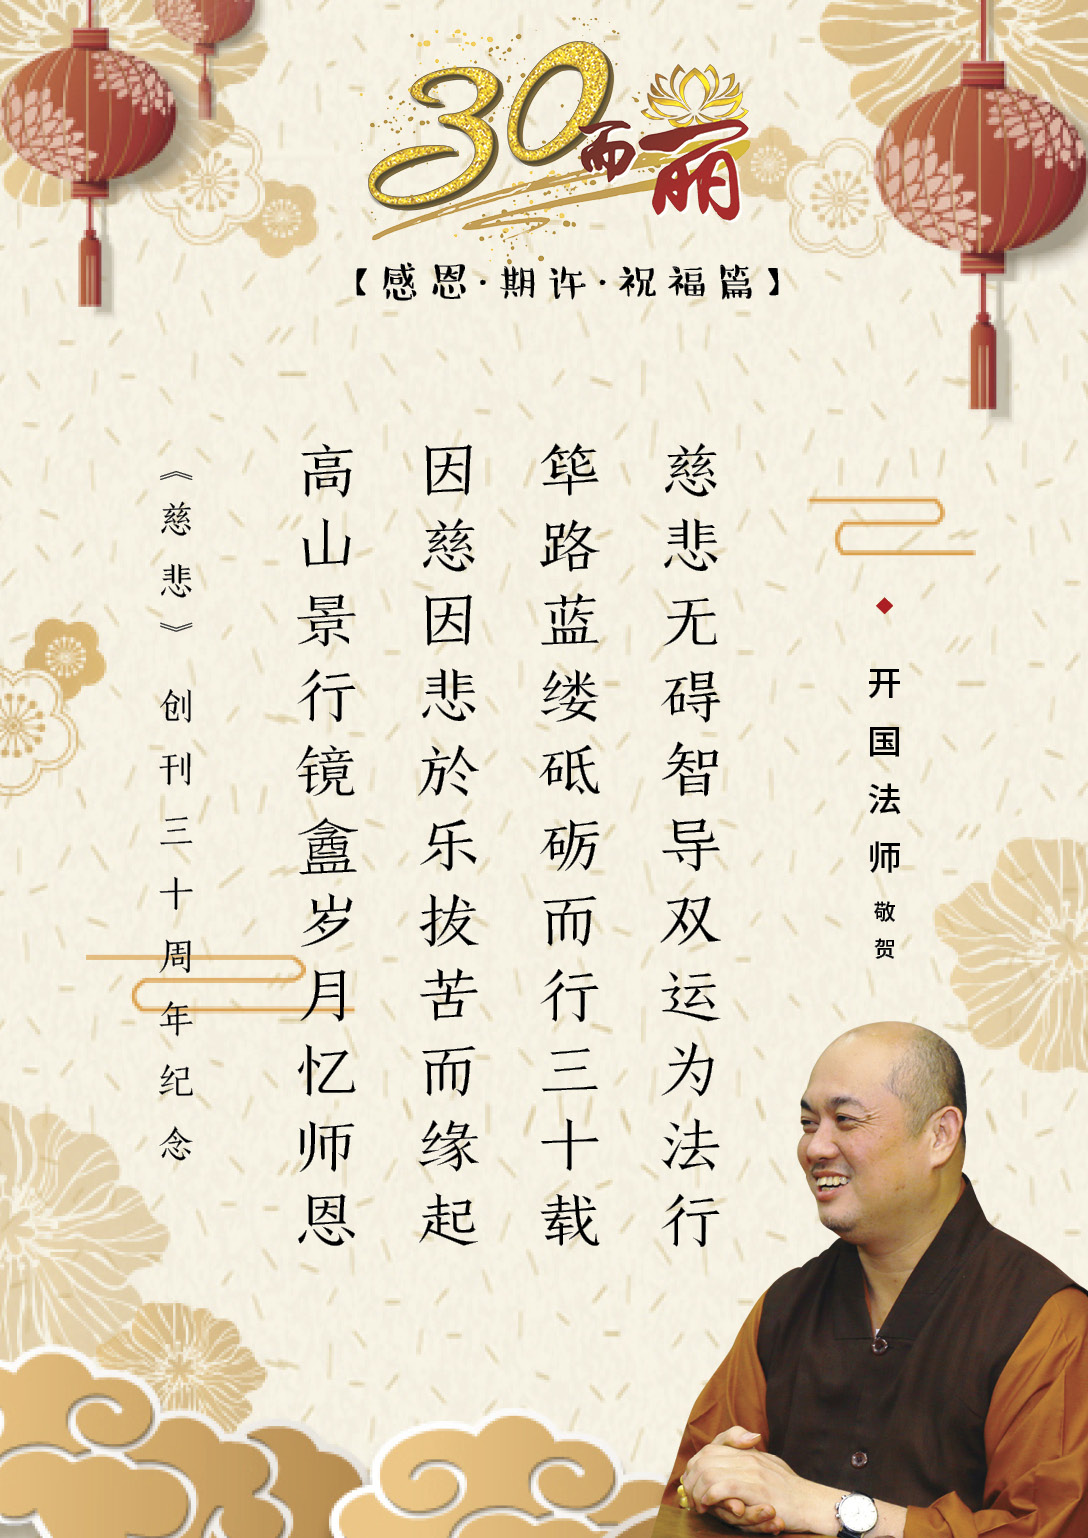 30而丽
【感恩·期许·祝福篇】
◆ 开国法师 敬贺
慈悲无碍智导双运为法行
筚路蓝缕砥砺而行三十载
因慈因悲於乐拔苦而缘起
高山景行镜盦岁月忆师恩
《慈悲》创刊三十周年纪念